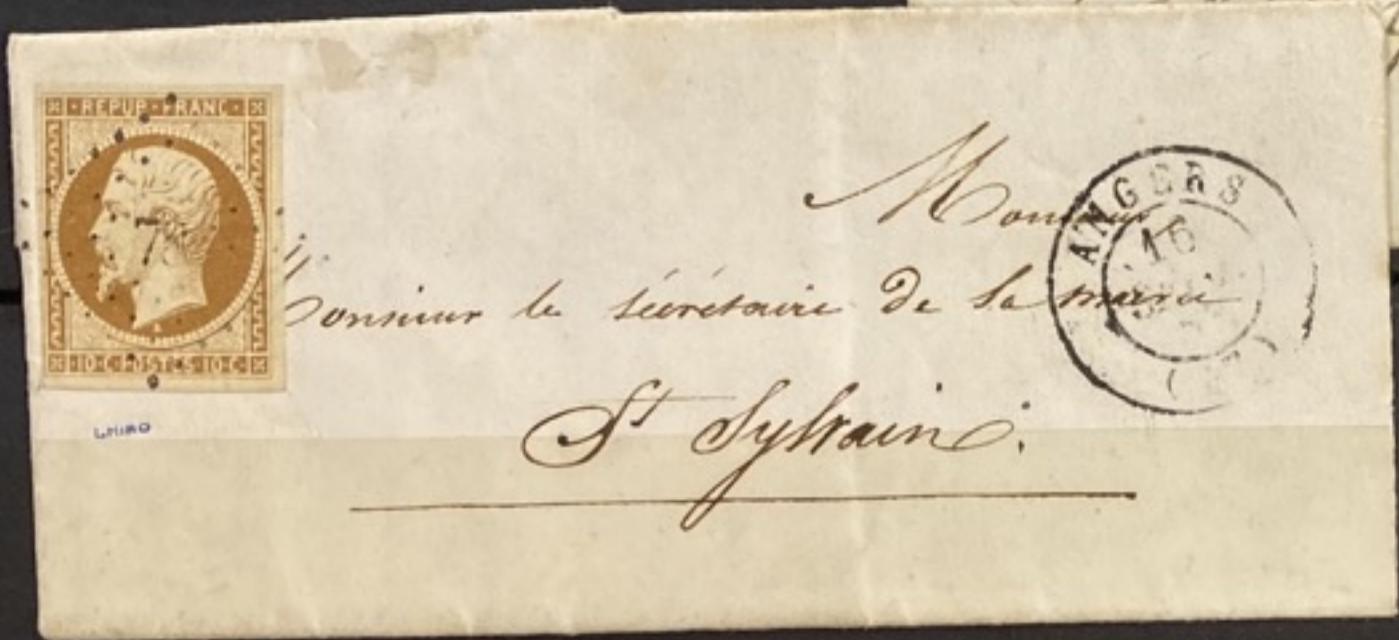 REPUB·FRANC·
10·C·POSTES·10·C·
Monsieur
Monsieur le secrétaire de la mairie
St Sylvain.
ANGERS
16